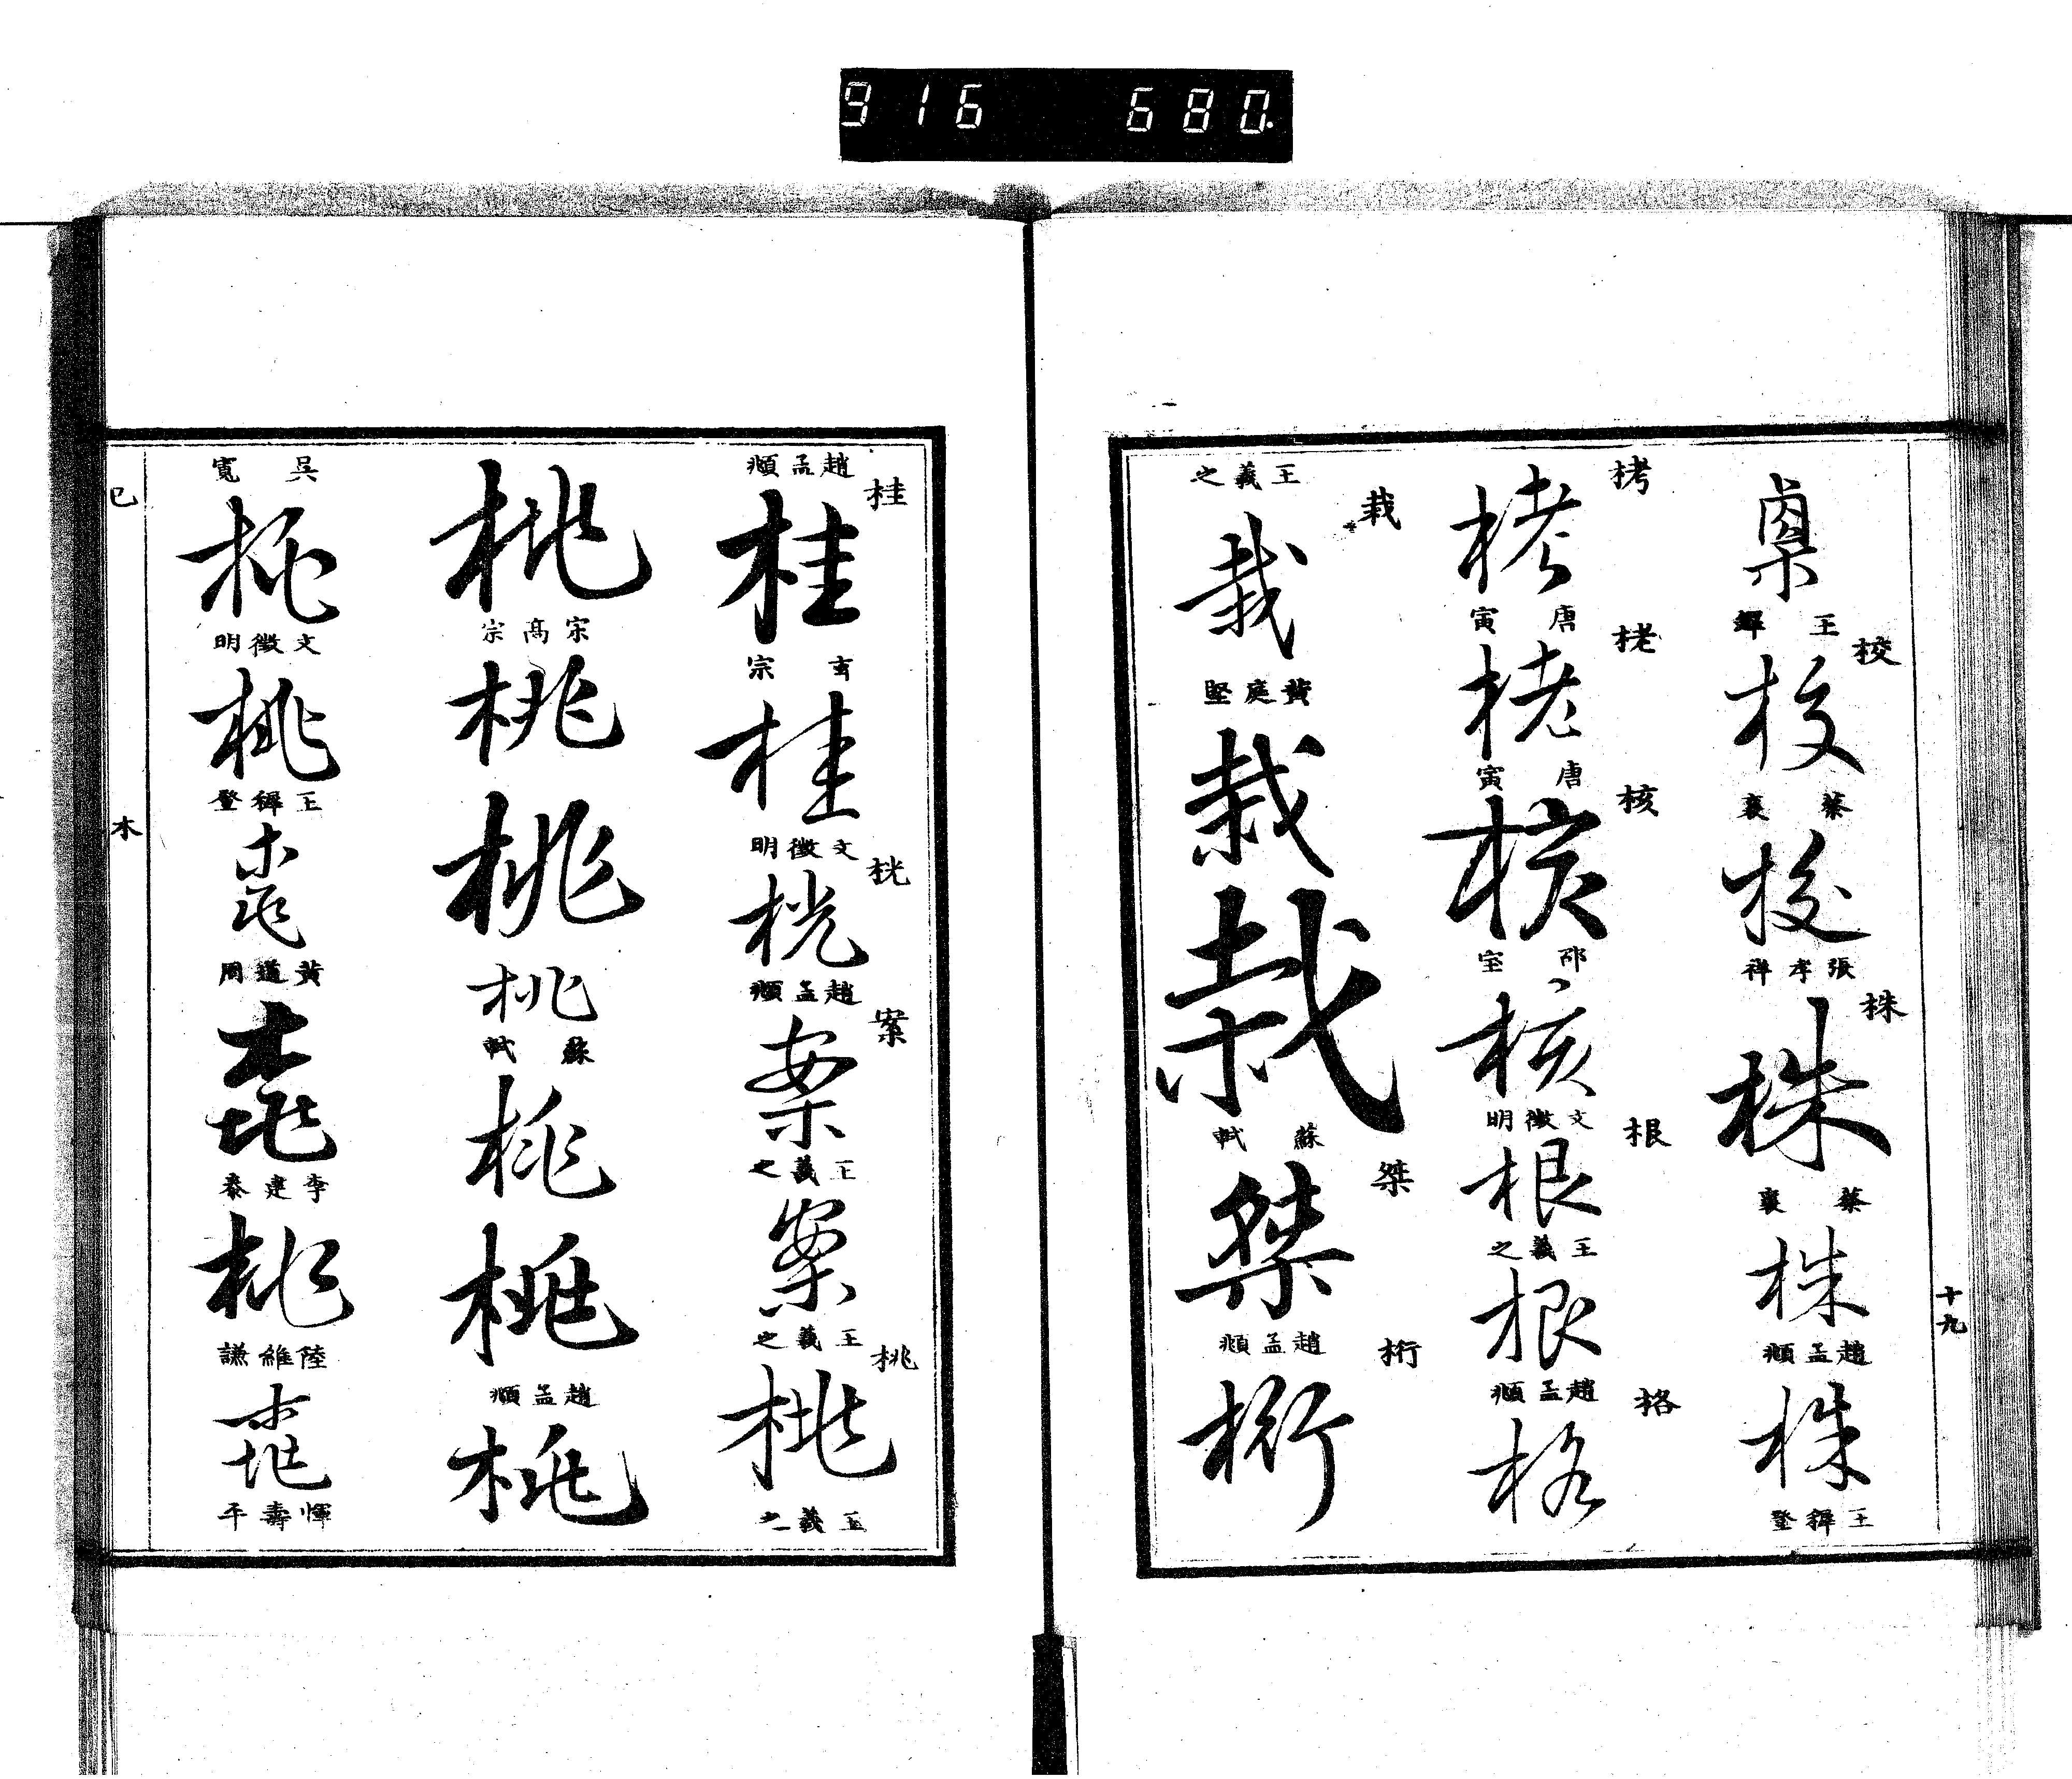 916 680.
十九
桌
王鐸
校
校
蔡襄
校
張孝祥
株
株
蔡襄
株
趙孟頫
株
王穉登
栲
栲
唐寅
栳
栳
唐寅
核
核
邵宝
核
文徵明
根
根
王羲之
根
趙孟頫
格
格
王羲之
栽
栽
黃庭堅
栽
栽
蘇軾
桀
桀
趙孟頫
桁
桁
趙孟頫
桂
桂
玄宗
桂
文徵明
桄
桄
趙孟頫
案
案
王羲之
案
王羲之
桃
桃
王羲之
桃
宋高宗
桃
桃
桃
蘇軾
桃
桃
趙孟頫
桃
吳寬
桃
文徵明
桃
王穉登
桃
黃道周
桃
李建泰
桃
陸維謙
桃
惲壽平
巳
木